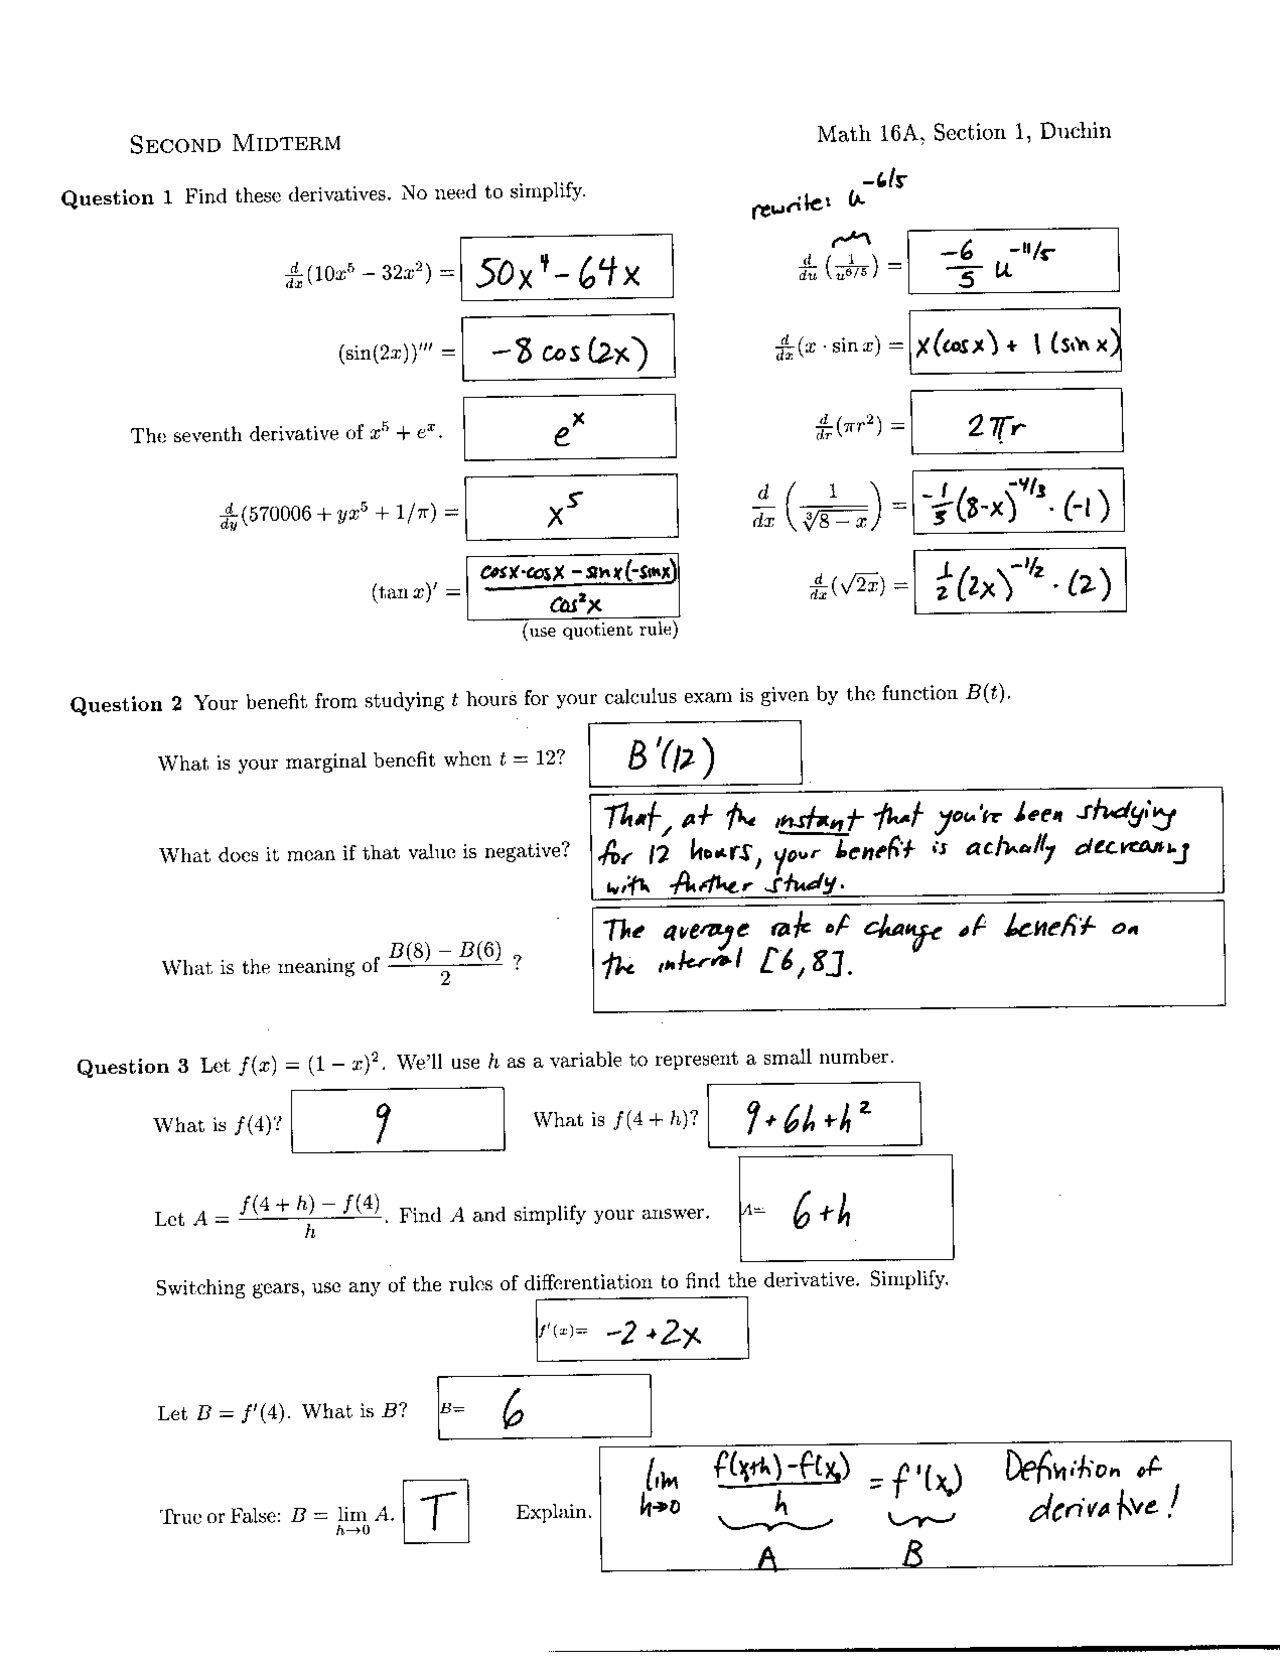 SECOND MIDTERM
Math 16A, Section 1, Duchin
Question 1 Find these derivatives. No need to simplify.
rewrite: u^{-6/5}
d/dx (10x^5 − 32x^2) = 50x^4 − 64x
d/du (1/u^{6/5}) = -6/5 u^{-11/5}
(sin(2x))''' = −8 cos(2x)
d/dx (x · sin x) = x(cos x) + 1(sin x)
The seventh derivative of x^5 + e^x. e^x
d/dr (πr^2) = 2πr
d/dy (570006 + yx^5 + 1/π) = x^5
d/dx (1/∛(8 − x)) = -1/3 (8-x)^{-4/3} · (-1)
(tan x)' = (cosx·cosx − sinx(-sinx))/cos^2 x
(use quotient rule)
d/dx (√2x) = 1/2 (2x)^{-1/2} · (2)
Question 2 Your benefit from studying t hours for your calculus exam is given by the function B(t).
What is your marginal benefit when t = 12? B'(12)
What does it mean if that value is negative?
That, at the instant that you're been studying
for 12 hours, your benefit is actually decreasing
with further study.
What is the meaning of (B(8) − B(6))/2 ?
The average rate of change of benefit on
the interval [6,8].
Question 3 Let f(x) = (1 − x)^2. We'll use h as a variable to represent a small number.
What is f(4)? 9 What is f(4 + h)? 9+6h+h^2
Let A = (f(4 + h) − f(4))/h. Find A and simplify your answer. A= 6+h
Switching gears, use any of the rules of differentiation to find the derivative. Simplify.
f'(x)= -2+2x
Let B = f'(4). What is B? B= 6
True or False: B = lim_{h→0} A. T Explain. lim_{h→0} (f(x₀+h)-f(x₀))/h = f'(x₀) Definition of
derivative!
A B